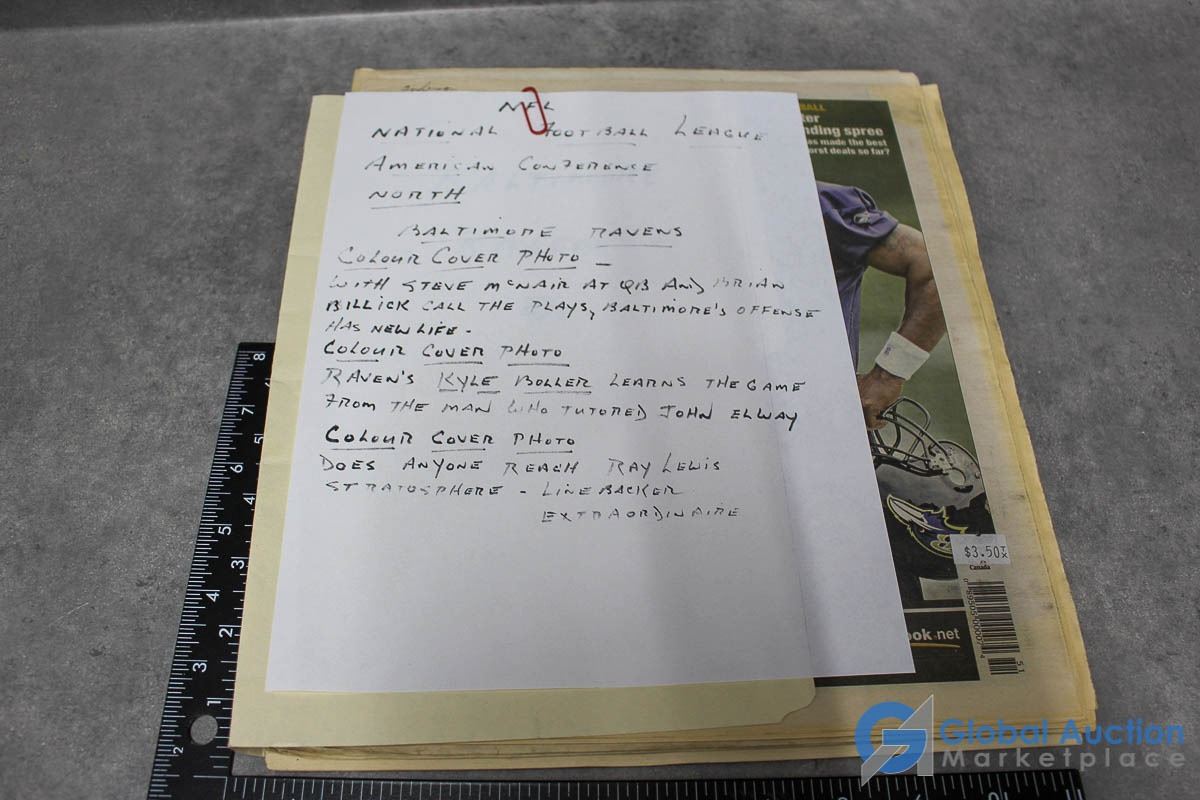 NFL
NATIONAL FOOTBALL LEAGUE
AMERICAN CONFERENCE
NORTH
BALTIMORE RAVENS
COLOUR COVER PHOTO -
WITH STEVE MCNAIR AT QB AND BRIAN
BILLICK CALL THE PLAYS, BALTIMORE'S OFFENSE
HAS NEW LIFE.
COLOUR COVER PHOTO
RAVEN'S KYLE BOLLER LEARNS THE GAME
FROM THE MAN WHO TUTORED JOHN ELWAY
COLOUR COVER PHOTO
DOES ANYONE REACH RAY LEWIS
STRATOSPHERE - LINEBACKER
EXTRAORDINAIRE
BALL
ter
nding spree
as made the best
orst deals so far?
$3.50
Canada
ook.net
51
8
7
6
5
4
3
2
5
6
5
3
2
3
2
Global Auction
Marketplace